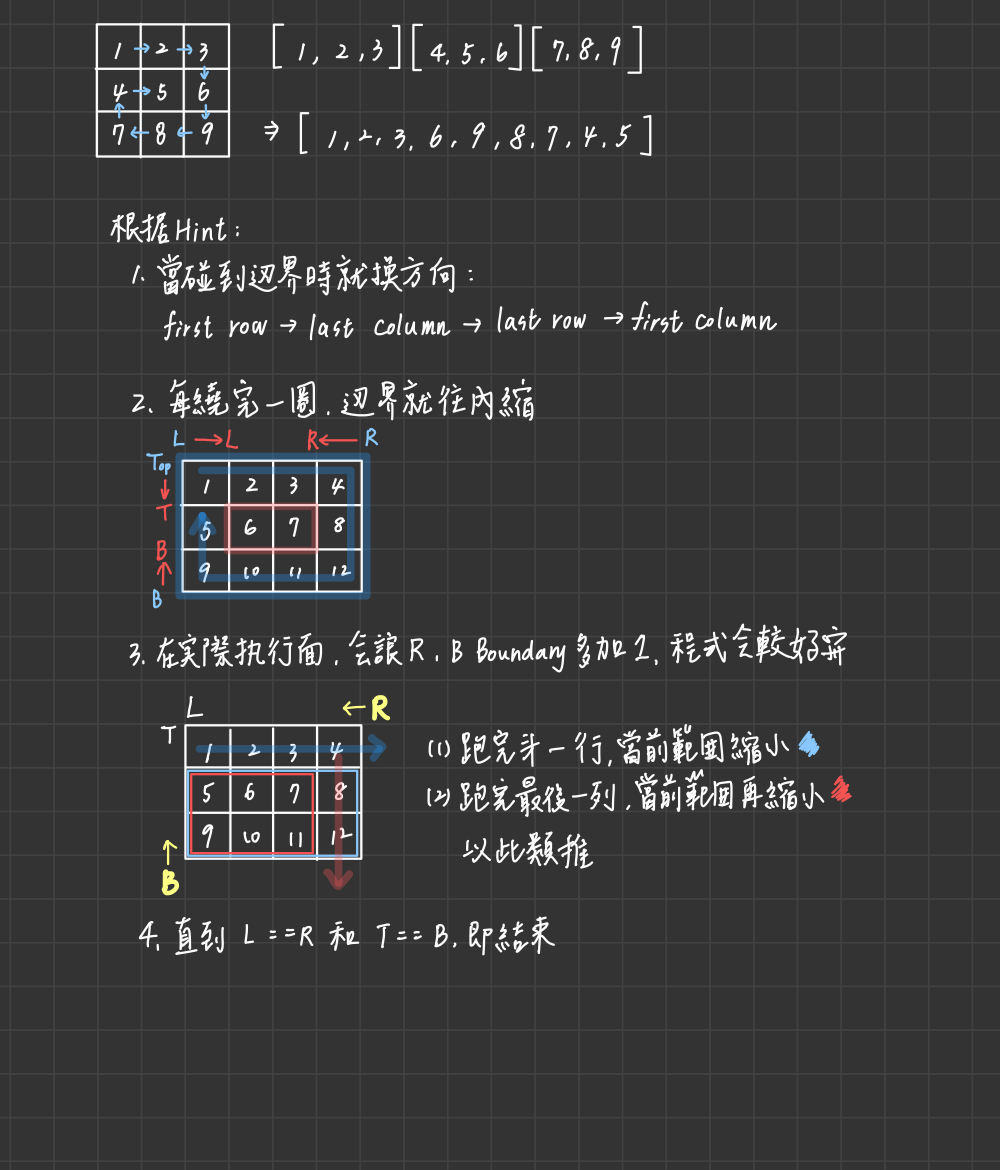 1 → 2 → 3 [1, 2, 3] [4, 5, 6] [7, 8, 9]
4 → 5 6
7 ← 8 ← 9 ⇒ [1, 2, 3, 6, 9, 8, 7, 4, 5]
根据Hint:
1. 當碰到边界時就換方向:
first row → last column → last row → first column
2. 每繞完一圈, 边界就往內縮
L → L R ← R
Top
1 2 3 4
T
5 6 7 8
B
9 10 11 12
B
3. 在实際执行面, 会讓 R, B Boundary 多加 1, 程式会較好寫
L ← R
T
1 2 3 4
5 6 7 8
9 10 11 12
B
(1) 跑完第一行, 當前範囲縮小
(2) 跑完最後一列, 當前範囲再縮小
以此類推
4. 直到 L == R 和 T == B, 即結束